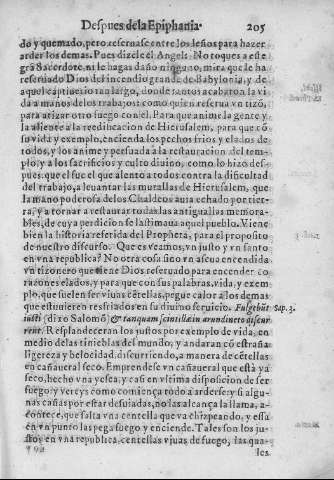 Despues de la Epiphania. 205
do y quemado, pero reseruase entre los leños para hazer
arder los demas. Pues dizele el Angel: No toques a este
gra Sacerdote, ni le hagas daño ninguno, mira que le ha
reseruado Dios del incendio grande de Babylonia, y de
aquel captiuerio tan largo, donde tantos acabaron la vi
da a manos del os trabajos: como quien reserua vn tizõ,
para atizar otro fuego con el. Para que anime la gente y
la aliente a la reedificacion de Hierusalem, para que cõ
su vida y exemplo, encienda los pechos frios y elados de
todos, y los anime y persuada a la restauracion del tem-
plo, y a los sacrificios y culto diuino, como lo hizo des-
pues: que el fue el que alento a todos contra la dificultad
del trabajo, a leuantar las murallas de Hierusalem, que
la mano poderosa de los Chaldeos auia echado por tier-
ra, y a tornar a restaurar todas las antiguallas memora-
bles, de cuya perdicion se lastimaua aquel pueblo. Viene
bien la historia referida del Propheta, para el proposito
de nuestro discurso. Que es veamos, vn justo y vn santo
en vna republica? No otra cosa sino vn ascua encendida
vn tizonero que tiene Dios reseruado para encender co
razones elados, y para que con sus palabras, vida, y exem-
plo, que suelen ser viuas cẽtellas, pegue calor a los demas
que estuuieren resfriados en su diuino seruicio. Fulgebũt Sap. 3.
iusti (dixo Salomõ) & tanquam scintillæ in arundineto discur-
rent. Resplandeceran los justos por exemplo de vida, en
medio de las tinieblas del mundo, y andaran cõ estraña
ligereza y belocidad, discurriendo, a manera de cẽtellas
en cañaueral seco. Emprendese vn cañaueral que està ya
seco, hecho vna yesca, y casi en vltima disposicion de ser
fuego: y vereys como comiença todo a arderse: y si algu-
nas cañas por estar desuiadas, no las alcança la llama, a-
contece, que salta vna centella que va chizpeando, y essa
en vn punto las pega fuego y enciende. Tales son los ju-
stos en vna republica, centellas viuas de fuego, las qua-
les